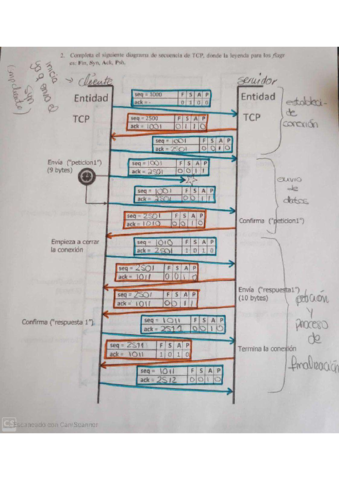 2. Completa el siguiente diagrama de secuencia de TCP, donde la leyenda para los flags
es: Fin, Syn, Ack, Psh.
inicia
cliente
servidor
Entidad
TCP
Entidad
TCP
seq = 1000 F S A P
ack = - 0 1 0 0
seq = 2500 F S A P
ack = 1001 0 1 1 0
seq = 1001 F S A P
ack = 2501 0 0 1 0
de
conexión
Envía ("peticion1")
(9 bytes)
seq = 1001 F S A P
ack = 2501 0 0 1 1
seq = 1001 F S A P
ack = 2501 0 0 1 1
envio
de
datos
seq = 2501 F S A P
ack = 1010 0 0 1 0
Confirma ("peticion1")
Empieza a cerrar
la conexión
seq = 1010 F S A P
ack = 2501 1 0 1 0
seq = 2501 F S A P
ack = 1011 0 0 1 0
Envía ("respuesta1")
(10 bytes)
seq = 2501 F S A P
ack = 1011 0 0 1 1
petición
y
proceso
de
finalización
Confirma ("respuesta 1").
seq = 1011 F S A P
ack = 2511 0 0 1 0
seq = 2511 F S A P
ack = 1011 1 0 1 0
Termina la conexión
seq = 1011 F S A P
ack = 2512 0 0 1 0
CS Escaneado con CamScanner